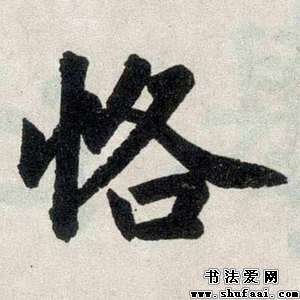 恪
书法爱网
www.shufaai.com